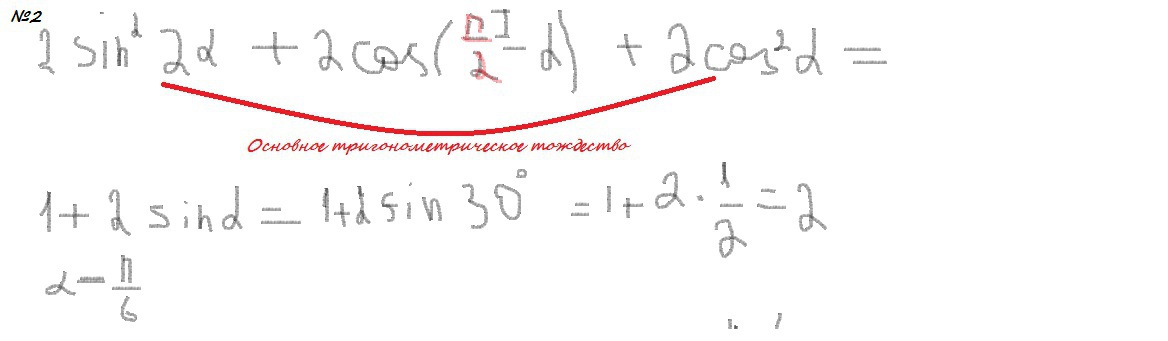 №2
2 sin² 2α + 2cos(π/2 - α) + 2cos²α =
Основное тригонометрическое тождество
1 + 2 sin α = 1+2 sin 30° = 1 + 2 · 1/2 = 2
α = π/6